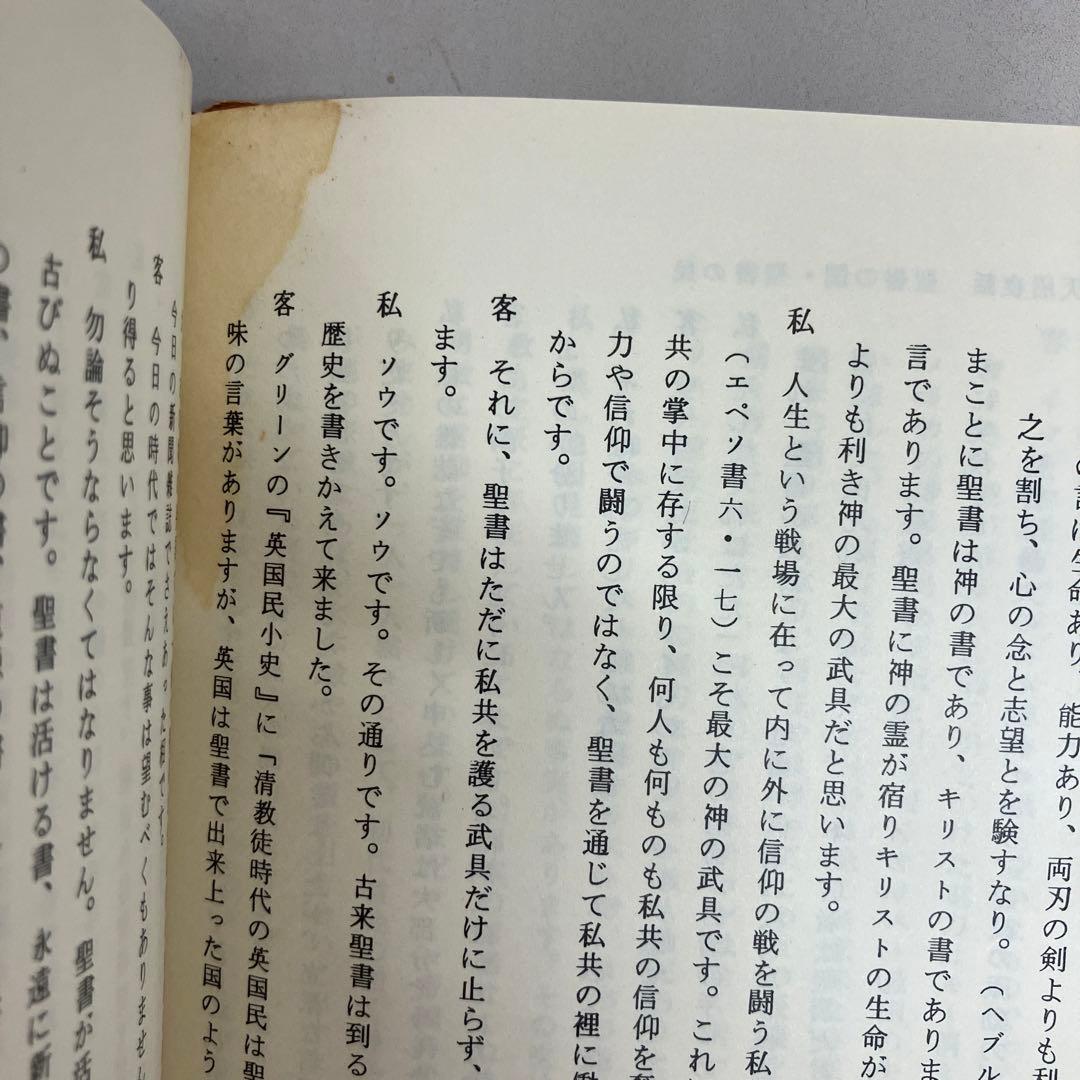 の言は生命あり、能力あり、両刃の剣よりも利
之を割ち、心の念と志望とを験すなり。（ヘブル
まことに聖書は神の書であり、キリストの書でありま
言であります。聖書に神の霊が宿りキリストの生命が
よりも利き神の最大の武具だと思います。
私 人生という戦場に在って内に外に信仰の戦を闘う私
（エペソ書六・一七）こそ最大の神の武具です。これ
共の掌中に存する限り、何人も何ものも私共の信仰を奪
力や信仰で闘うのではなく、聖書を通じて私共の裡に働
からです。
客 それに、聖書はただに私共を護る武具だけに止らず、
ます。
私 ソウです。ソウです。その通りです。古来聖書は到る
歴史を書きかえて来ました。
客 グリーンの『英国民小史』に「清教徒時代の英国民は聖
味の言葉がありますが、英国は聖書で出来上った国のよう
今日の新聞雑誌でさえあった程です。
客 今日の時代ではそんな事は望むべくもありません
り得ると思います。
私 勿論そうならなくてはなりません。聖書が活
古びぬことです。聖書は活ける書、永遠に新
の書、信仰の書、